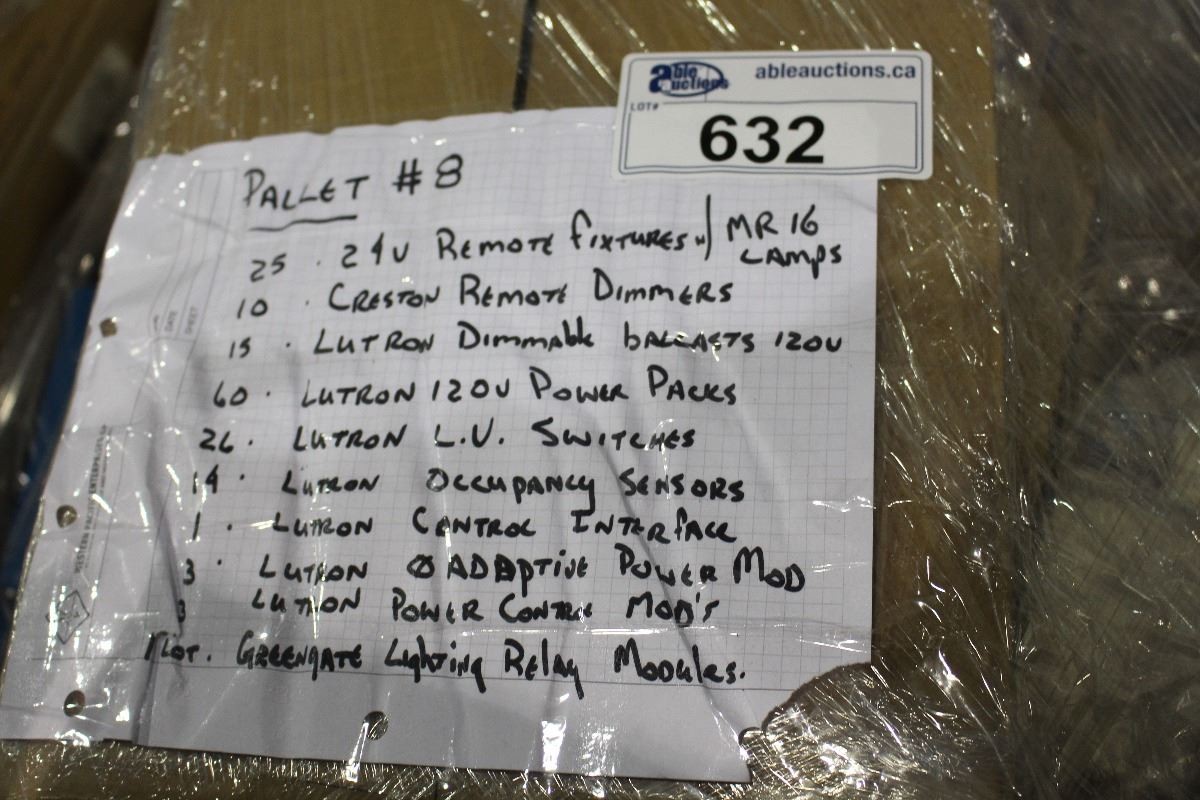 able auctions
ableauctions.ca
LOT#
632
PALLET #8
25 . 24V REMOTE FIXTURES w/ MR16 LAMPS
10 . CRESTON REMOTE DIMMERS
15 . LUTRON DIMMABLE BALLASTS 120V
60 . LUTRON 120V POWER PACKS
26 . LUTRON L.V. SWITCHES
14 . LUTRON OCCUPANCY SENSORS
1 . LUTRON CONTROL INTERFACE
3 . LUTRON ADAPTIVE POWER MOD
3 LUTRON POWER CONTROL MOD'S
GREENGATE LIGHTING RELAY MODULES.
DATE
SHEET